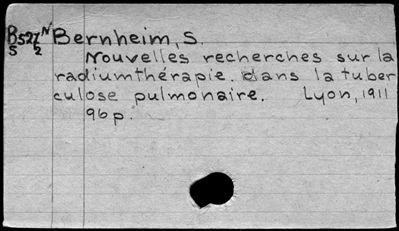 B527N Bernheim, S.
S 2
Nouvelles recherches sur la
radiumthérapie. dans la tuber
culose pulmonaire. Lyon, 1911
96p.